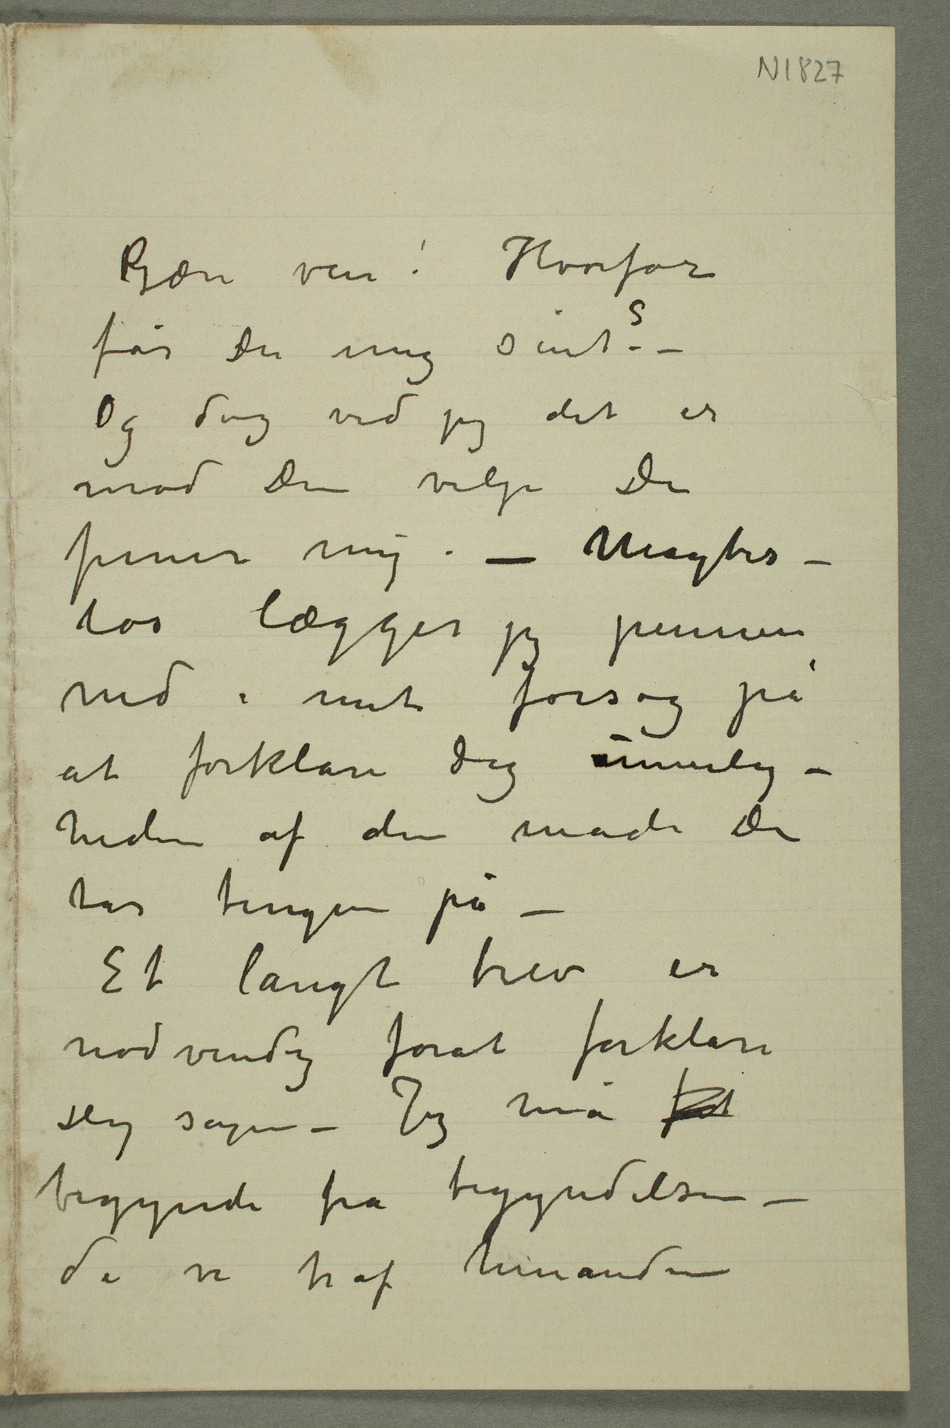 N1827
Kjære ven! Hvorfor
får Du mig sint? –
Og dog ved jeg det er
mod Din vilje Du
piner mig. – Magtes–
løs lægger jeg pennen
ned i mit forsøg på
at forklare Dig umulig–
heden af den måde Du
tar tingen på –
Et langt brev er
nødvendig forat forklare
Dig sagen – Jeg må
begynde fra begyndelsen –
da vi traf hinanden